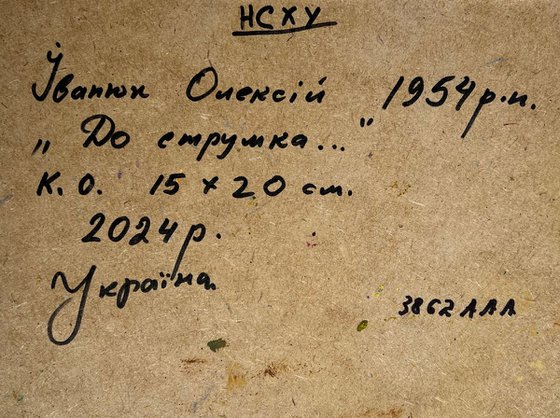 НСХУ
Іванюк Олексій 1954 р.н.
„ До струмка... "
к. о. 15 × 20 см.
2024 р.
Україна.
3862ААА